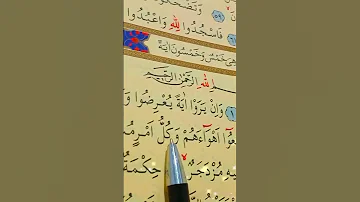 وَتَضْحَكُونَ
فَاسْجُدُوا لِلّٰهِ وَاعْبُدُوا
هِىَ خَمْسٌ وَخَمْسُونَ اٰيَةً
اللّٰهِ الرَّحْمٰنِ الرَّحِيمِ
وَاِنْ يَرَوْا اٰيَةً يُعْرِضُوا
اَهْوَٓاءَهُمْ وَكُلُّ اَمْرٍ
مُزْدَجَرٌ حِكْمَةٌ